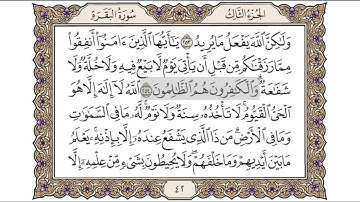 الجزء الثالث سورة البقرة
وَلَٰكِنَّ ٱللَّهَ يَفْعَلُ مَا يُرِيدُ ۝٢٥٣ يَٰٓأَيُّهَا ٱلَّذِينَ ءَامَنُوٓا۟ أَنفِقُوا۟
مِمَّا رَزَقْنَٰكُم مِّن قَبْلِ أَن يَأْتِىَ يَوْمٌ لَّا بَيْعٌ فِيهِ وَلَا خُلَّةٌ وَلَا
شَفَٰعَةٌ ۗ وَٱلْكَٰفِرُونَ هُمُ ٱلظَّٰلِمُونَ ۝٢٥٤ ٱللَّهُ لَآ إِلَٰهَ إِلَّا هُوَ
ٱلْحَىُّ ٱلْقَيُّومُ ۚ لَا تَأْخُذُهُۥ سِنَةٌ وَلَا نَوْمٌ ۚ لَّهُۥ مَا فِى ٱلسَّمَٰوَٰتِ
وَمَا فِى ٱلْأَرْضِ ۗ مَن ذَا ٱلَّذِى يَشْفَعُ عِندَهُۥٓ إِلَّا بِإِذْنِهِۦ ۚ يَعْلَمُ
مَا بَيْنَ أَيْدِيهِمْ وَمَا خَلْفَهُمْ ۖ وَلَا يُحِيطُونَ بِشَىْءٍ مِّنْ عِلْمِهِۦٓ إِلَّا
٤٢